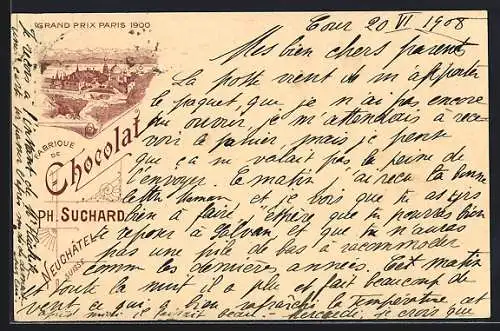 GRAND PRIX PARIS 1900
FABRIQUE
DE
Chocolat
PH. SUCHARD
NEUCHÂTEL
SUISSE
Tour 20 VI 1908
Mes bien chers parents
La poste vient de m'apporter
le paquet, que je n'ai pas encore
pu ouvrir, je m'attendais à rece-
voir le panier, mais je pense
que ça ne valait pas la peine de
l'envoyer. Ce matin j'ai reçu ta bonne
lettre Maman, et je vois que tu as
bien à faire, j'espère que tu pourras bien
te reposer à et que tu n'auras
pas une pile de bas à raccommoder
comme les dernières années. Cet matin
et toute la nuit il a plu et fait beaucoup de
vent ce qui a bien rafraîchi la température, cet
après midi il faisait beau. Mercredi, je crois que